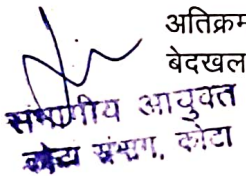 अतिक्रम
बेदखल
संभागीय आयुक्त
कोटा संभाग, कोटा